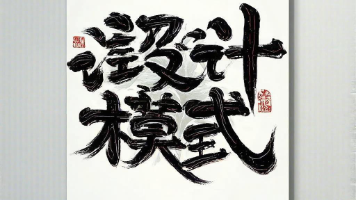 设计
模式